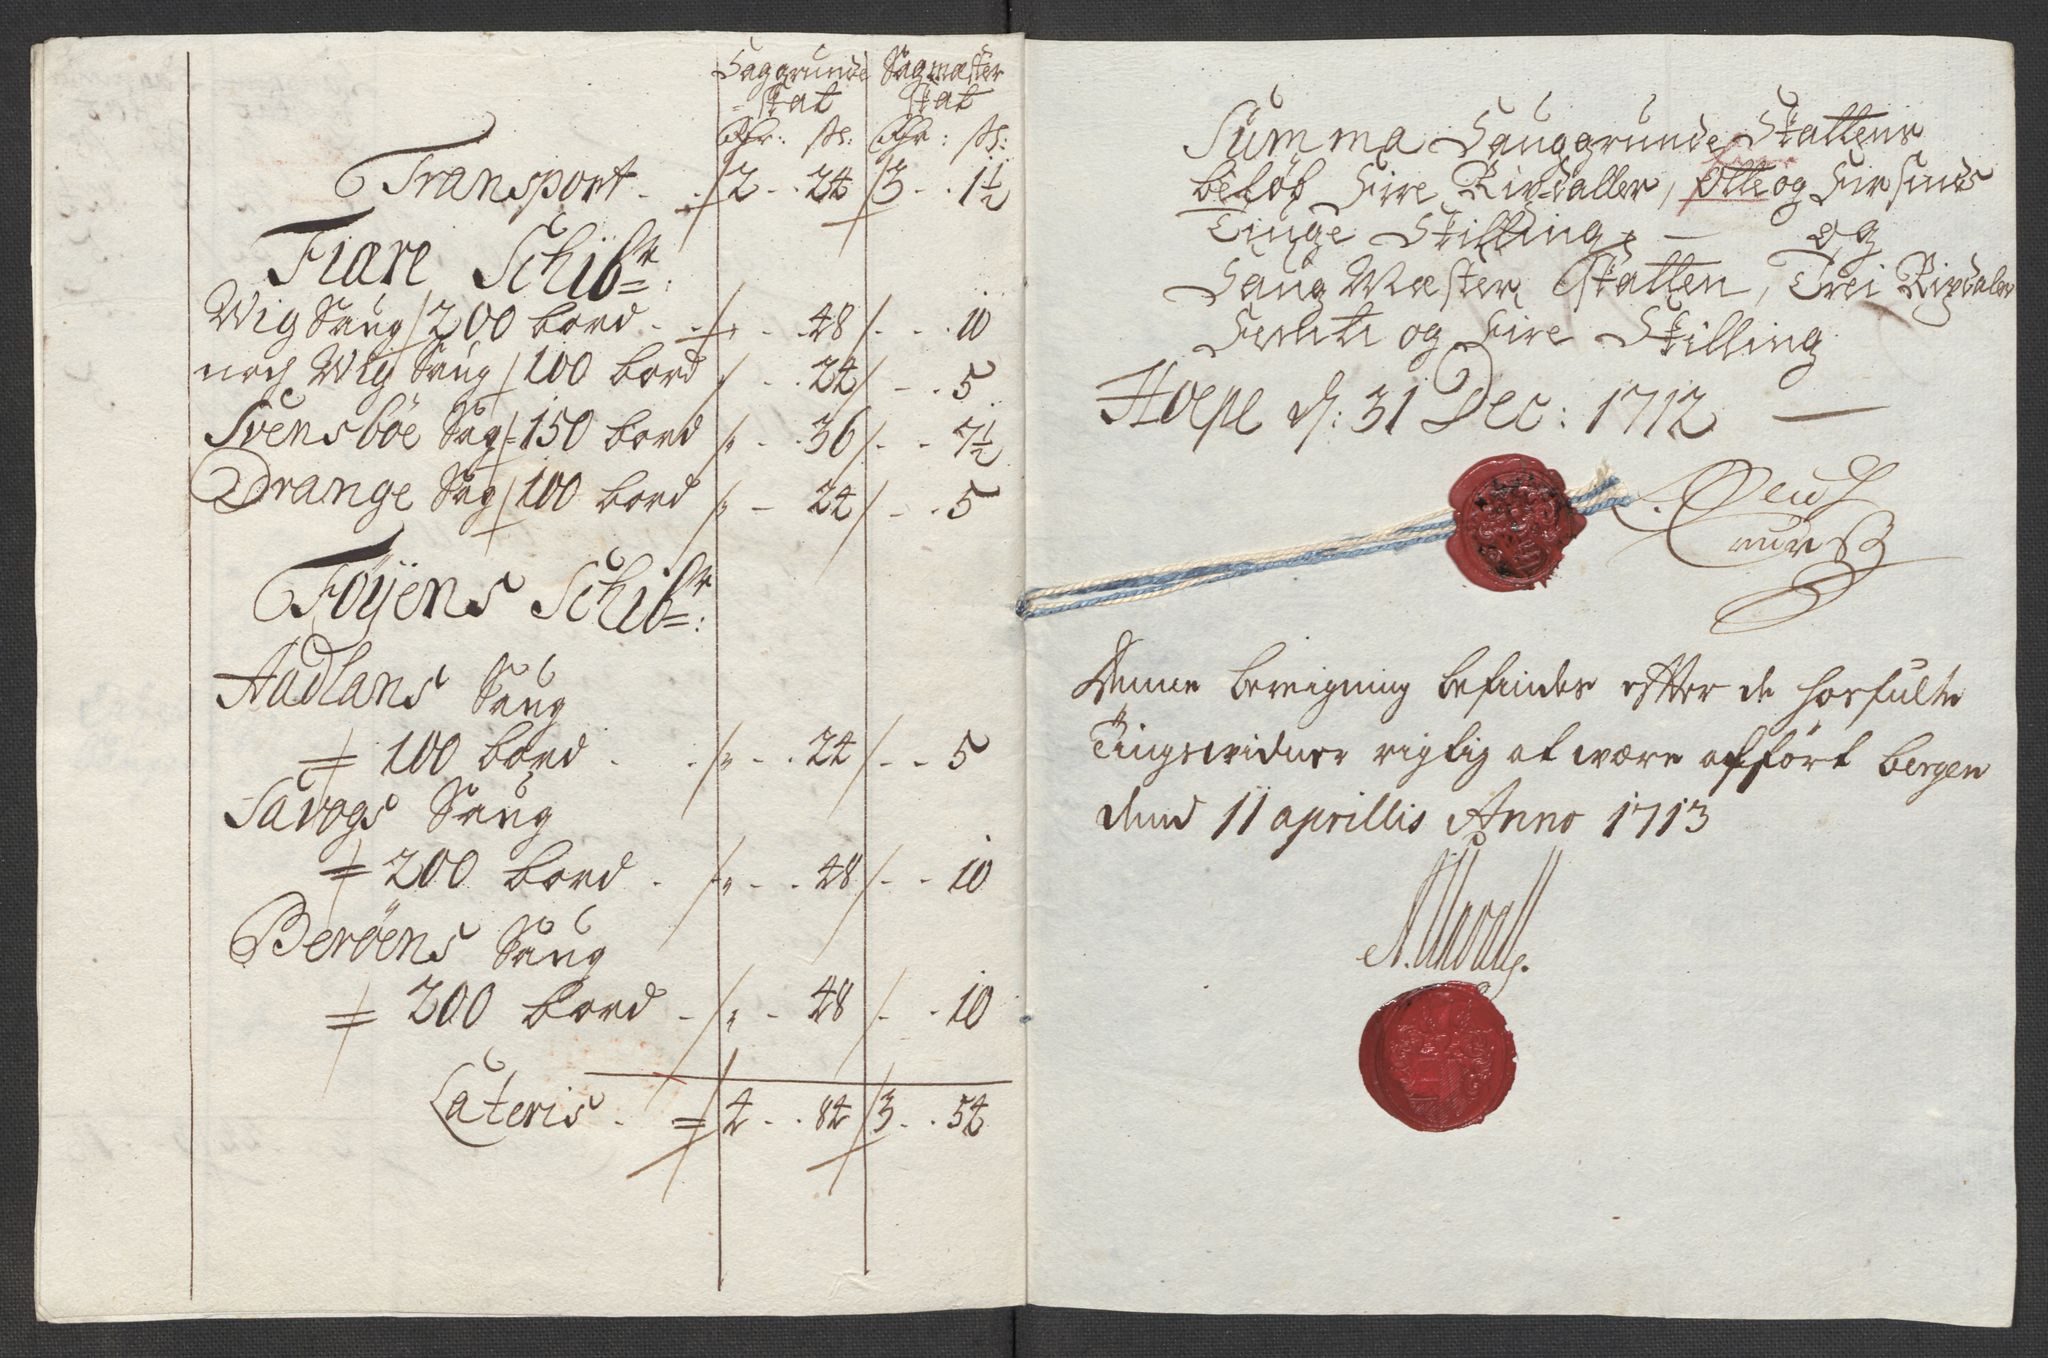 Sauggrunde Sagmæster
=skat skat
Rdr: sk: Rdr: sk:
Transport . . 2 . . 24 3 . . 1½
Fiære Schibr:
Wig Saug 200 bord . . " . . 48 . . 10
noch Wig Saug 100 bord " . . 24 . . 5
Svensböe Sag 150 bord " . . 36 . . 7½
Drange Sag 100 bord " . . 24 . . 5
Föyens Schibr:
Audlans Saug
= 100 bord . . " . . 24 . . 5
Savogs Saug
= 200 bord . " . . 48 . . 10
Beröens Saug
= 200 bord . " . . 48 . . 10
Lateris . = 4 . . 84 3 . . 54
Summa Sauggrunde Skattens
belöb Fire Rixdaller, Otte og Firsinds
Tiuge Skilling, — og
Saug Mæster Skatten, Trei Rixdaler
og Fire Skilling
Hope d: 31 Dec: 1712 —
Denne bereigning befindes effter de hosfulte
Tingsvidner rigtig at være afført bergen
dend 11 aprillis Anno 1713